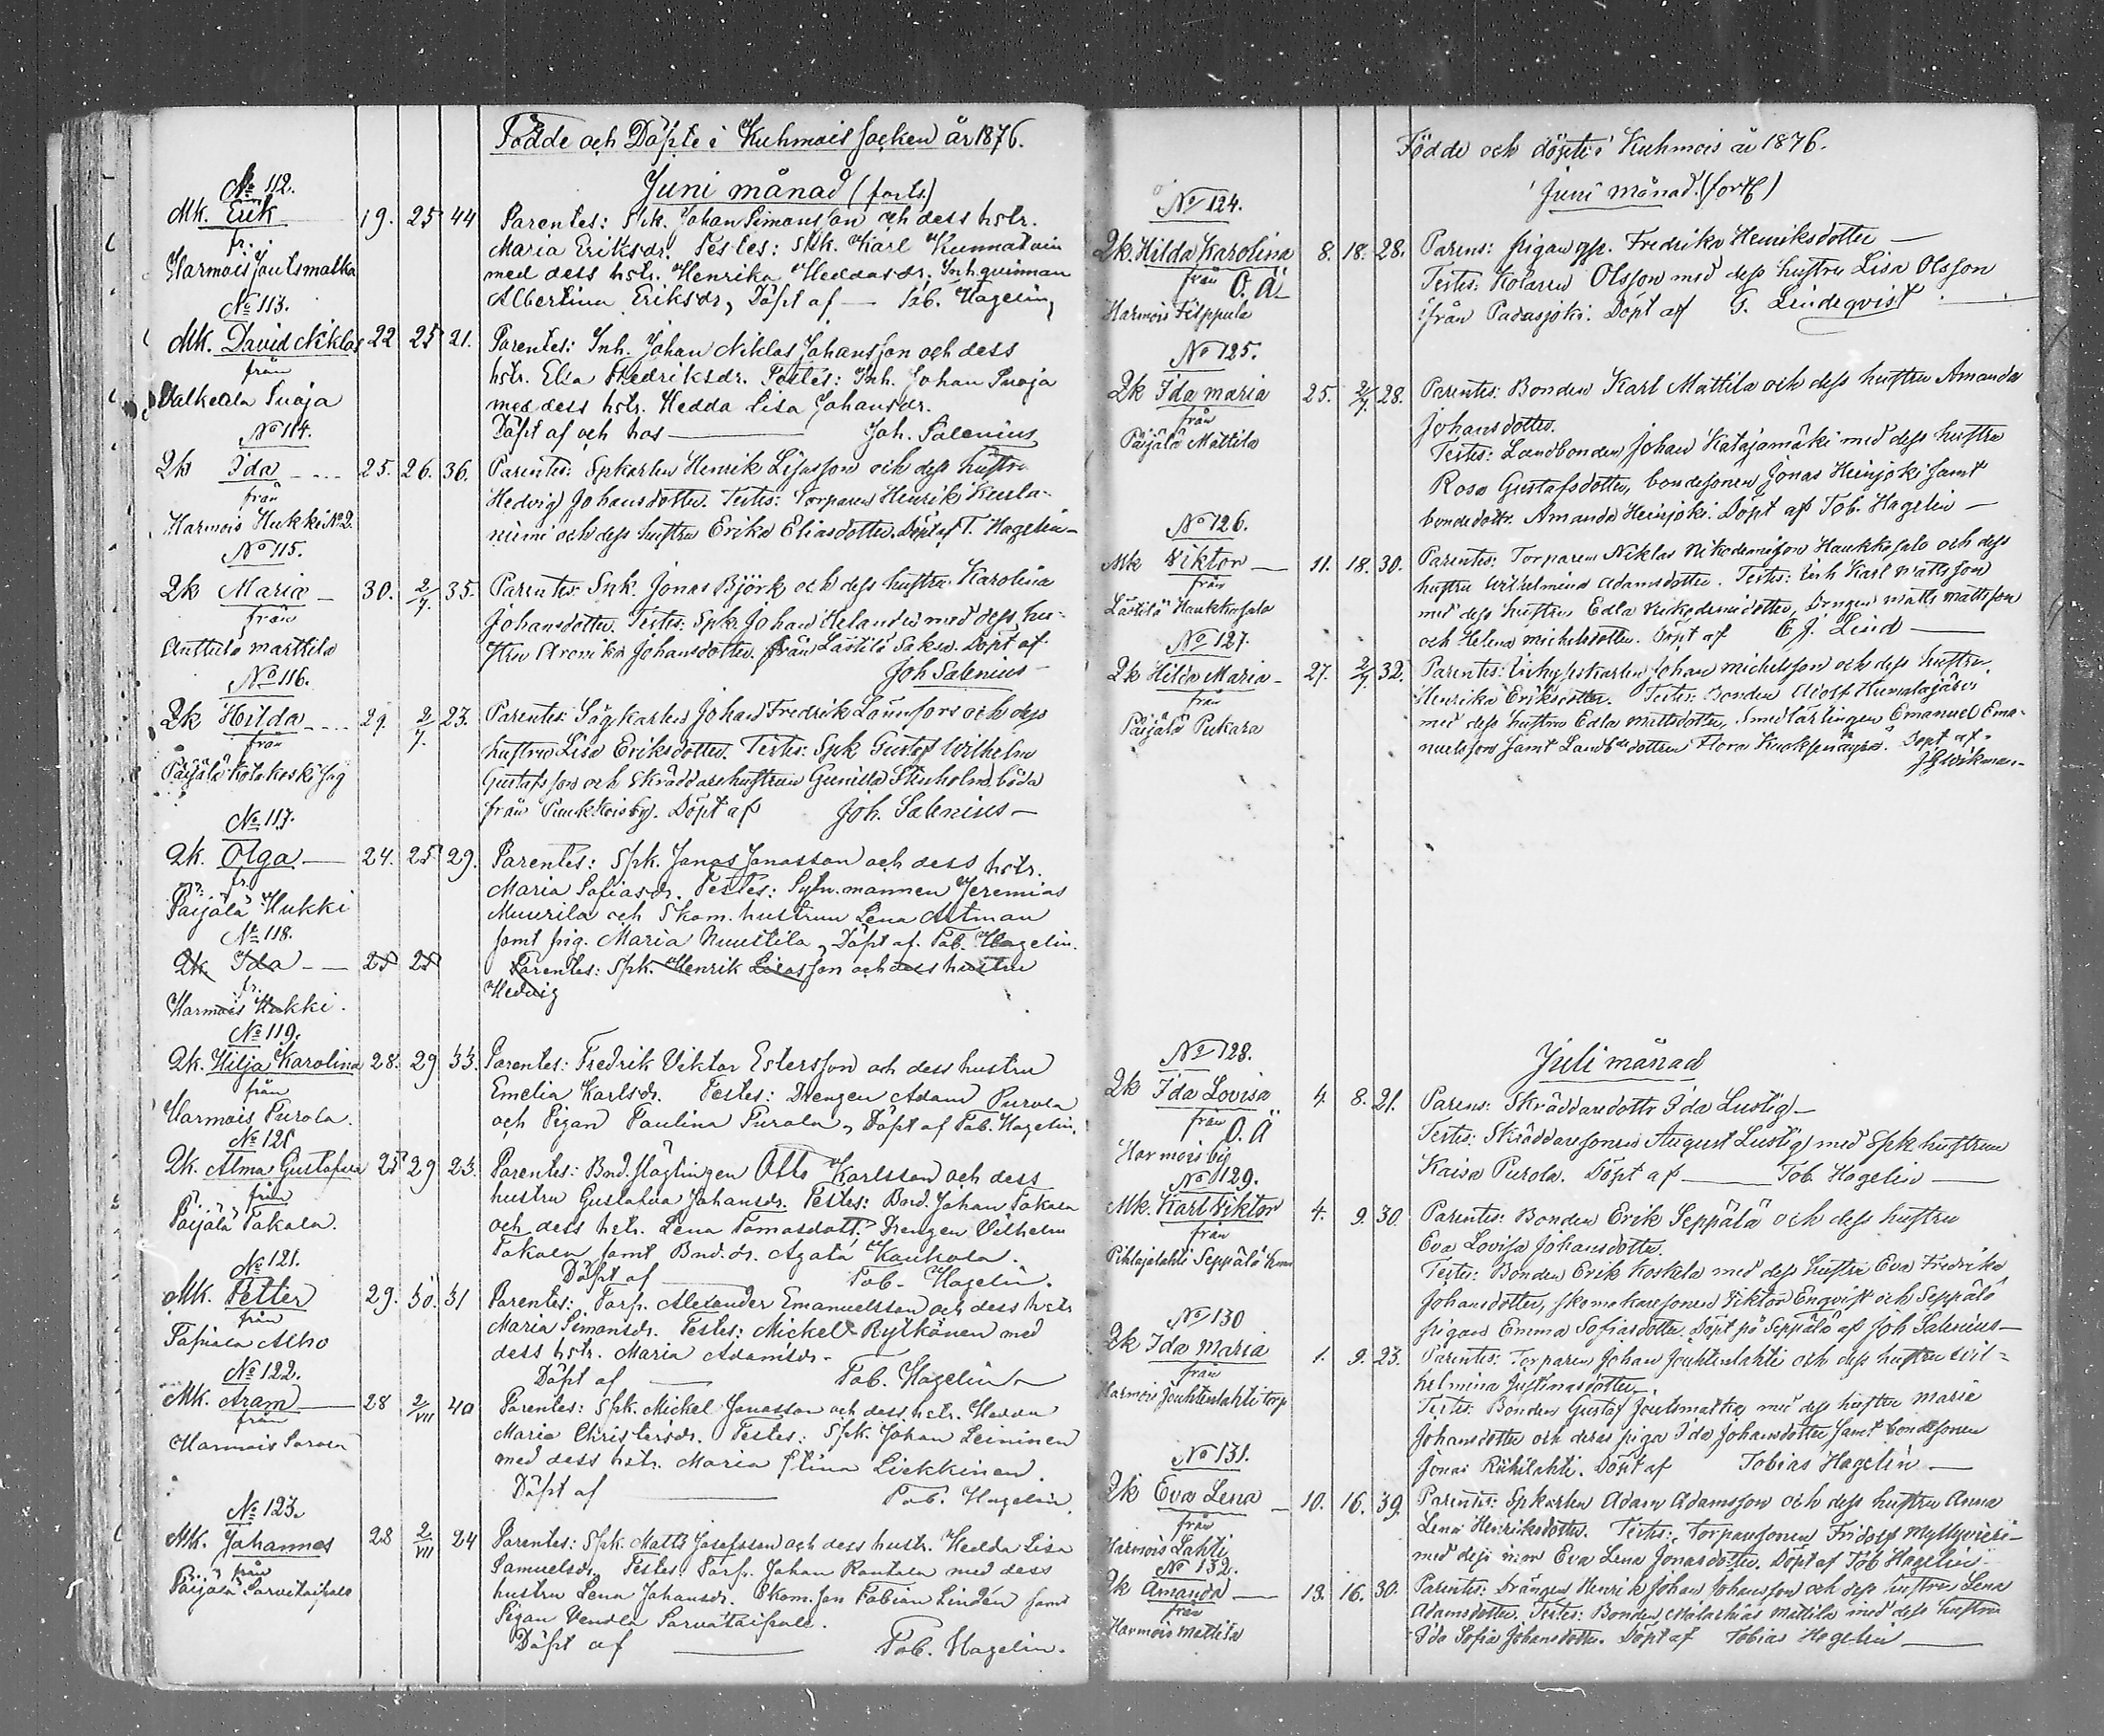 Födde och Döpte i Kuhmois socken år 1876.
Juni månad (forts.)
No 112.
Mk. Erik 19. 25 44 Parentes: Spk. Johan Simonsson och dess hstr.
fr. Maria Eriksdr. Testes: Spk. Karl
Harmois Joutsmatka med dess hstr. Henrika Heddasdr. Inh.quinnan
Albertina Eriksdr, Döpt af — Tob. Hagelin
No 113.
Mk. David Niklas 22 25 21. Parentes: Inh. Johan Niklas Johansson och dess
från hstr. Elsa Fredriksdr. Testes: Inh. Johan Suoja
Suoja med dess hstr. Hedda Lisa Johansdr.
Döpt af och hos — Joh. Salenius
No 114.
Qk Ida 25. 26. 36. Parentes: Spkarlen Henrik Lisasson och dess hustru
från Hedvig Johansdotter. Testes: Torparen Henrik Kusta-
Harmois Hukki No 2. niemi och dess hustru Erika Eliasdotter. Döpt af T. Hagelin —
No 115.
Qk Maria 30. 2/7. 35. Parentes: Spk. Jonas Björk och dess hustru Karolina
från Johansdotter. Testes: Spk. Johan Helander med dess hu-
Anttula Marttila stru Johansdotter. från Lästilä Döpt af
Joh Salenius —
No 116.
Qk Hilda 29. 2/7. 23. Parentes: Sågkarlen Johan Fredrik Lönnfors och dess
från hustru Lisa Eriksdotter. Testes: Spk Gustaf Wilhelm
Päijälä Kotakoski såg Gustafsson och Skräddarehustrun Gunilla Stenholm, båda
från by. Döpt af Joh. Salenius —
No 117.
Qk. Olga 24. 25 29. Parentes: Spk. Jonas Jonasson och dess hstr.
fr. Maria Sofiasdr. Testes: Sytn.mannen Jeremias
Päijälä Hukki Muurila och Skom. hustrun Lena Astman
samt pig. Maria Nuustila, Döpt af. Tob. Hagelin.
No 118.
Qk. Ida 25 25 Parentes: Spk. Henrik Lisasson och dess hustru
fr. Hedvig
Harmois Hukki.
No 119.
Qk. Hilja Karolina 28. 29 33. Parentes: Fredrik Viktor Estersson och dess hustru
från Emelia Karlsdr. Testes: Drengen Adam Purola
Harmois Purola. och Pigan Paulina Purola, Döpt af Tob. Hagelin.
No 120
Qk. Alma Gustafva 25 29 23. Parentes: Bnd.släglingen Otto Karlsson och dess
från hustru Gustafva Johansdr. Testes: Bnd. Johan Takala
Päijälä Takala. och dess hstr. Lena Tomasdott. Drengen Vilhelm
Takala samt Bnd.dr. Agata Kauhala.
Döpt af Tob. Hagelin.
No 121.
Mk. Petter 29. 30. 31 Parentes: Torp. Alexander Emanuelsson och dess hstr
från Maria Simonsdr. Testes: Mickel Rytkönen med
Alho dess hstr. Maria Adamsdr.
Döpt af — Tob. Hagelin
No 122.
Mk. Aram 28 2/VII 40 Parentes: Spk. Mickel Jonasson och dess hstr. Hedda
från Maria Christersdr. Testes: Spk. Johan Leininen
Harmois med dess hstr. Maria Stina Liekkinen.
Döpt af — Tob. Hagelin
No 123.
Mk. Johannes 28 2/VII 24 Parentes: Spk. Matts Josefsson och dess hustr. Hedda Lisa
från Samuelsdr. Testes: Torp. Johan Rantala med dess
Päijälä Sarvataipale hustru Lena Johansdr. Skom.son Fabian Lindén samt
Pigan Vendla Sarvataipale.
Döpt af — Tob. Hagelin.
Födde och döpte i Kuhmois år 1876.
Juni månad (forts)
No 124.
Qk. Hilda Karolina 8. 18. 28. Parens: pigan Fredrika Henriksdotter —
från O. Ä. Testes: Kolaren Olsson med dess hustru Lisa Olsson
Harmois Filppula från Padasjoki. Döpt af G. Lindeqvist
No 125.
Qk Ida Maria 25. 2/7. 28. Parentes: Bonden Karl Mattila och dess hustru Amanda
från Johansdotter.
Päijälä Mattila Testes: Landbonden Johan Katajamäki med dess hustru
Rosa Gustafsdotter, bondesonen Jonas Heinjoki samt
bondedottr. Amanda Heinjoki. Döpt af Tob. Hagelin —
No 126.
Mk Viktor 11. 18. 30. Parentes: Torparen Niklas Nikodemusson Haukkasalo och dess
från hustru Wilhelmina Adamsdotter. Testes: Inh Karl Mattsson
Lästilä Haukkasalo med dess hustru Edla Nikodemidotter, Drengen Matts Mattsson
och Helena Michelsdotter. Döpt af C J. Lind —
No 127.
Qk Hilda Maria 27. 2/7. 32. Parentes: Johan Michelsson och dess hustru
från Henrika Eriksdotter. Testes: Bonden Adolf Humalajärvi
Päijälä Pukara med dess hustru Edla Mattsdotter, smedlärlingen Emanuel Ema-
nuelsson samt Döpt af
No 128.
Juli månad
Qk Ida Lovisa 4. 8. 21. Parens: Skräddaredottr Ida Lustig —
från O. Ä Testes: Skräddaresonen August Lustig med Spk hustrun
Harmois by Kaisa Purola. Döpt af — Tob. Hagelin —
No 129.
Mk. Karl Viktor 4. 9. 30. Parentes: Bonden Erik Seppälä och dess hustru
från Eva Lovisa Johansdotter.
Pihlajalahti Seppälä Testes: Bonden Erik Koskela med dess hustru Eva Fredrika
Johansdotter, skomakaresonen Viktor Enqvist och Seppälä
pigan Emma Sofiasdotter, Döpt på Seppälä af Joh Salenius —
No 130
Qk Ida Maria 1. 9. 23. Parentes: Torparen Johan Jouhtenlahti och dess hustru Wil-
från helmina Justinasdotter.
Harmois Jouhtenlahti torp Testes: Bonden Gustaf Joutsmatka med dess hustru Maria
Johansdotter och deras piga Ida Johansdotter samt bondesonen
Jonas Riihilahti. Döpt af Tobias Hagelin —
No 131.
Qk Eva Lena 10. 16. 39. Parentes: Spkarlen Adam Adamsson och dess hustru Anna
från Lena Henriksdotter. Testes: Torparesonen Fridolf Myllyvieri
Harmois Lahti med dess mor Eva Lena Jonasdotter. Döpt af Tob Hagelin
No 132.
Qk Amanda 13. 16. 30. Parentes: Drängen Henrik Johan Johansson och dess hustru Lena
från Adamsdotter. Testes: Bonden Malachias Mattila med dess hustru
Harmois Mattila Ida Sofia Johansdotter. Döpt af Tobias Hagelin —